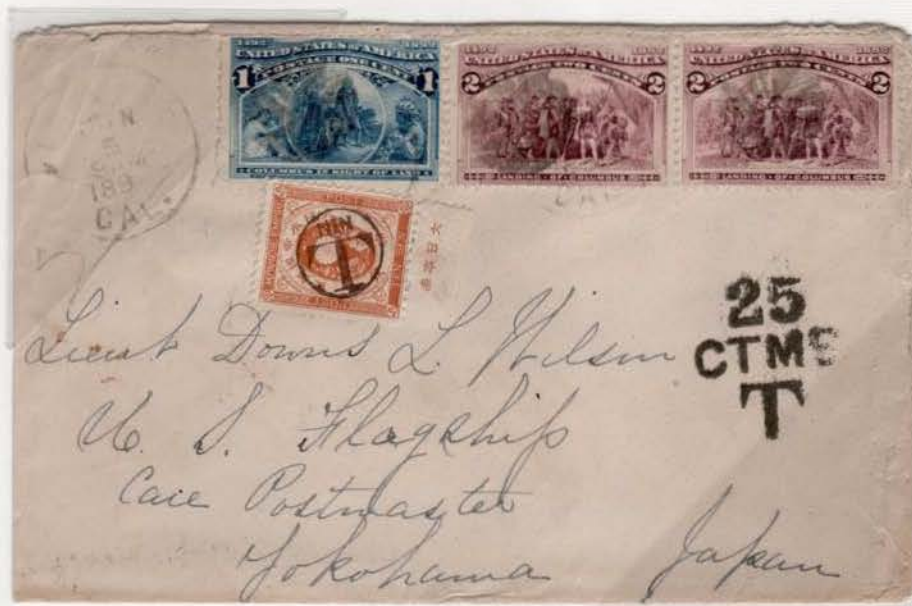 1492 1892
UNITED STATES OF AMERICA
POSTAGE ONE CENT
1 1
COLUMBUS IN SIGHT OF LAND
1492 1892
UNITED STATES OF AMERICA
2 2
LANDING OF COLUMBUS
1492 1892
UNITED STATES OF AMERICA
POSTAGE TWO CENTS
2 2
LANDING OF COLUMBUS
189
CAL.
POST
T
25
CTMS
T
Lieut Downs L. Wilson
U. S. Flagship
Care Postmaster
Yokohama Japan